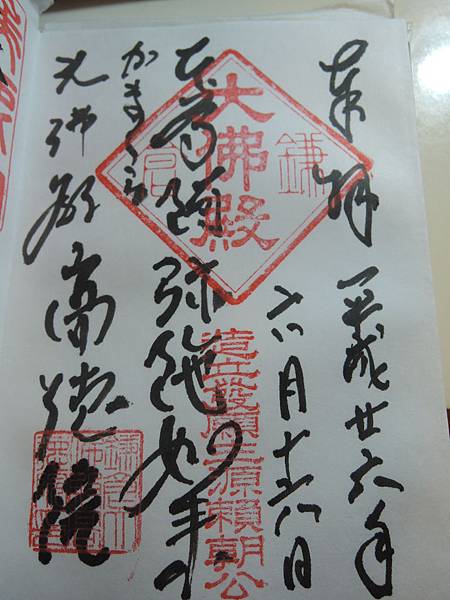 奉拝 平成廿六年
六月十六日
大佛殿
鎌倉
造立發願主源頼朝公
本尊阿弥陀如来
かまくら
大佛殿高徳院